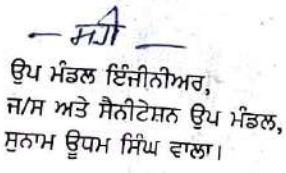 — ਸਹੀ —
ਉਪ ਮੰਡਲ ਇੰਜੀਨੀਅਰ,
ਜ/ਸ ਅਤੇ ਸੈਨੀਟੇਸ਼ਨ ਉਪ ਮੰਡਲ,
ਸੁਨਾਮ ਊਧਮ ਸਿੰਘ ਵਾਲਾ।